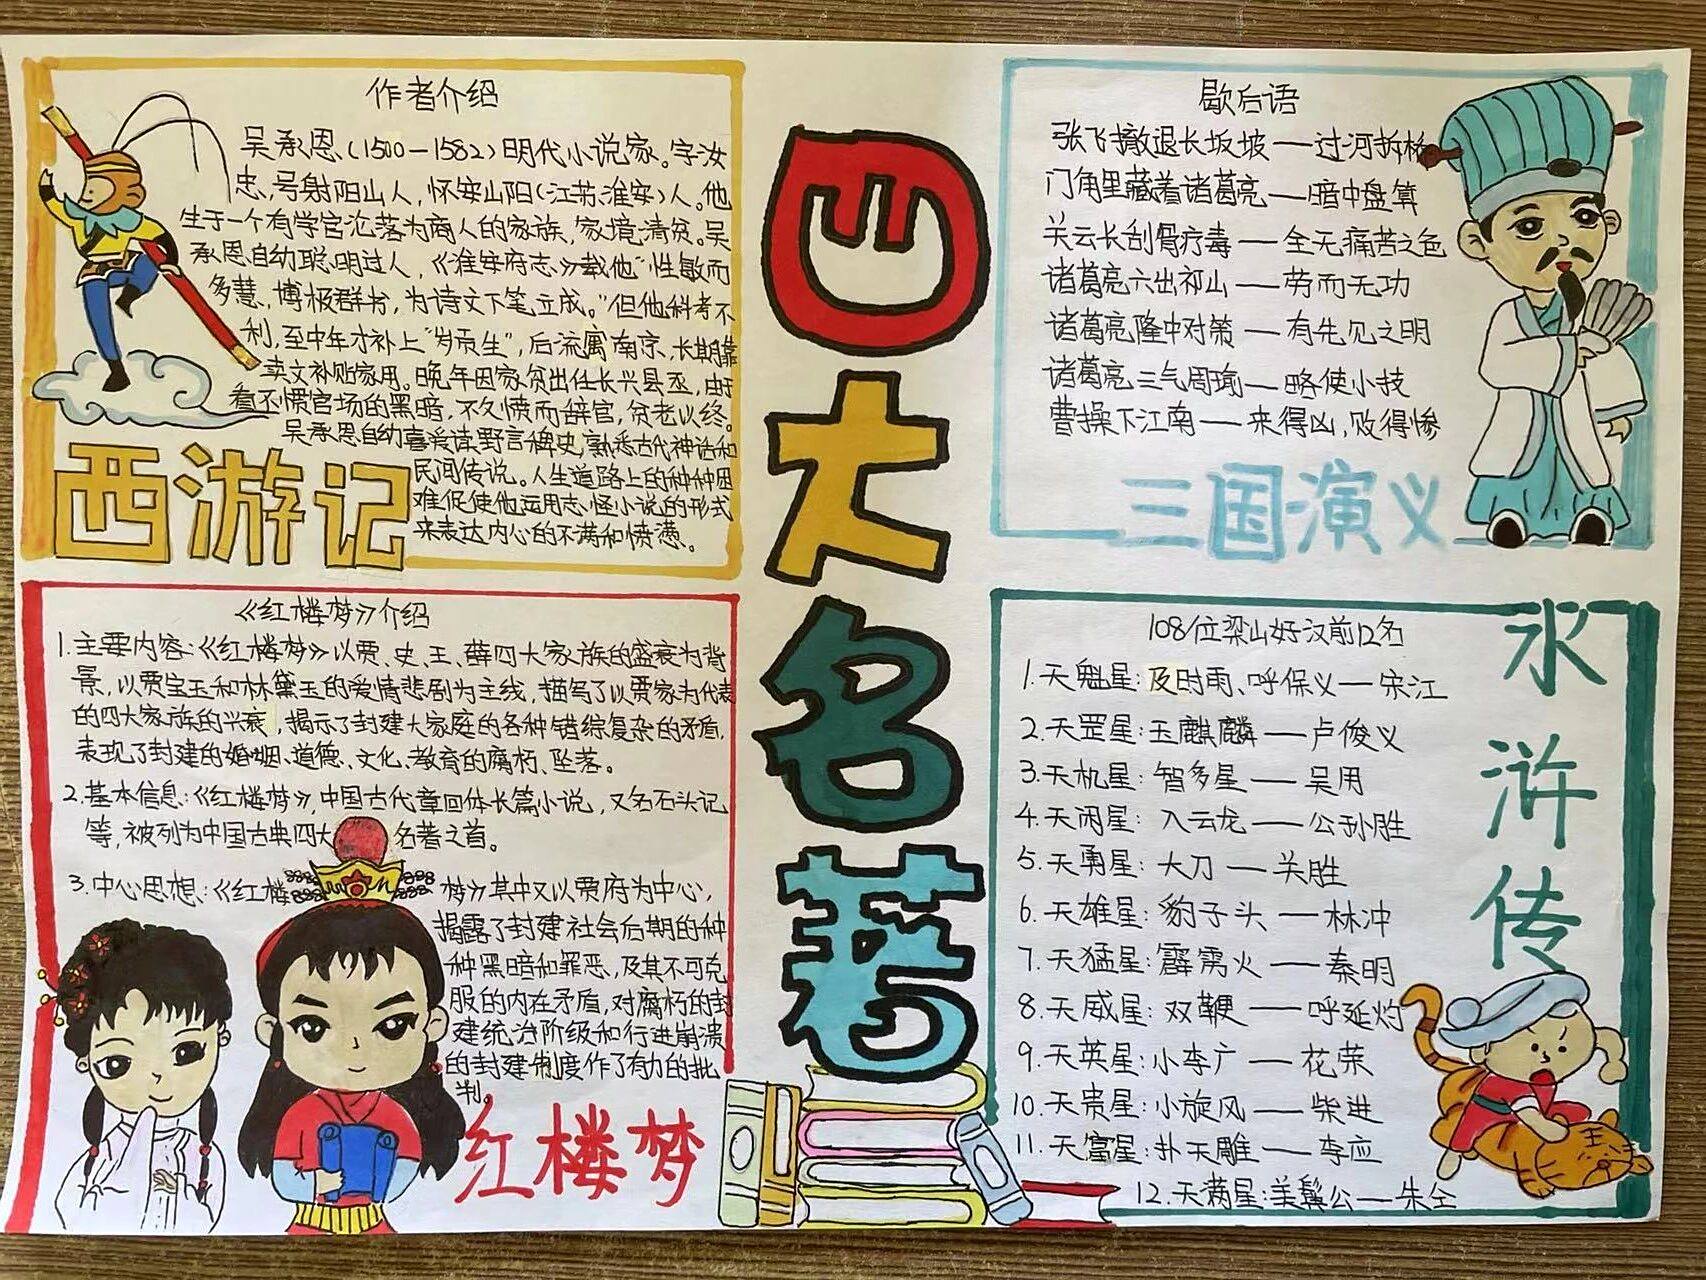 四大名著
作者介绍
吴承恩(1500—1582)明代小说家。字汝
忠,号射阳山人,怀安山阳(江苏淮安)人。他
生于一个有学官沦落为商人的家族,家境清贫。吴
承恩自幼聪明过人,《淮安府志》载他"性敏而
多慧,博极群书,为诗文下笔立成。"但他科考不
利,至中年才补上"岁贡生",后流寓南京,长期靠
卖文补贴家用。晚年因家贫出任长兴县丞,由于
看不惯官场的黑暗,不久愤而辞官,贫老以终。
吴承恩自幼喜爱读野言稗史,熟悉古代神话和
民间传说。人生道路上的种种困
难促使他运用志怪小说的形式
来表达内心的不满和愤懑。
西游记
歇后语
张飞撤退长坂坡——过河拆桥
门角里藏着诸葛亮——暗中盘算
关云长刮骨疗毒——全无痛苦之色
诸葛亮六出祁山——劳而无功
诸葛亮隆中对策——有先见之明
诸葛亮三气周瑜——略使小技
曹操下江南——来得凶,败得惨
三国演义
《红楼梦》介绍
1.主要内容:《红楼梦》以贾、史、王、薛四大家族的盛衰为背
景,以贾宝玉和林黛玉的爱情悲剧为主线,描写了以贾家为代表
的四大家族的兴衰,揭示了封建大家庭的各种错综复杂的矛盾,
表现了封建的婚姻、道德、文化、教育的腐朽、坠落。
2.基本信息:《红楼梦》,中国古代章回体长篇小说,又名石头记
等,被列为中国古典四大名著之首。
3.中心思想:《红楼梦》其中又以贾府为中心,
揭露了封建社会后期的种
种黑暗和罪恶,及其不可克
服的内在矛盾,对腐朽的封
建统治阶级和行进崩溃
的封建制度作了有力的批
判。
红楼梦
108位梁山好汉前12名
1.天魁星:及时雨、呼保义—宋江
2.天罡星:玉麒麟——卢俊义
3.天机星:智多星——吴用
4.天闲星:入云龙——公孙胜
5.天勇星:大刀——关胜
6.天雄星:豹子头——林冲
7.天猛星:霹雳火——秦明
8.天威星:双鞭——呼延灼
9.天英星:小李广——花荣
10.天贵星:小旋风——柴进
11.天富星:扑天雕——李应
12.天满星:美髯公——朱仝
水浒传